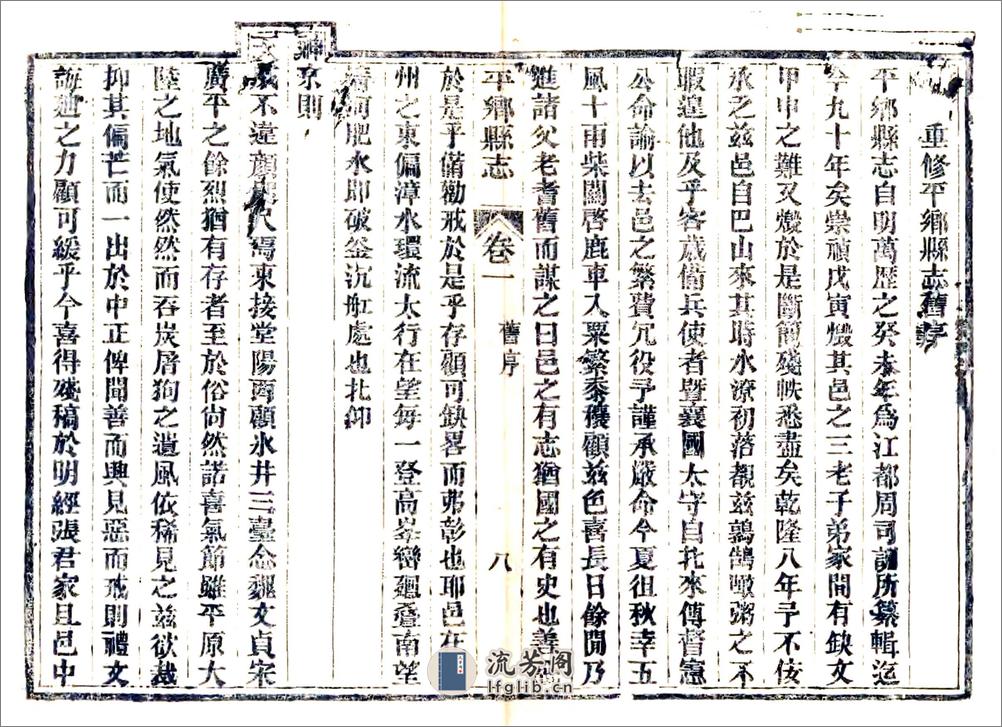 重修平鄉縣志舊序
平鄉縣志自明萬歷之癸未年為江都周司訓所纂輯迄
今九十年矣崇禎戊寅燬其邑之三老子弟家間有缺文
甲申之難又燬於是斷簡殘帙悉盡矣乾隆八年予不佞
承乏茲邑自巴山來其時水潦初落覩茲鶉鵠噉粥之不
暇遑他及乎客歲備兵使者暨襄國太守自北來傳督憲
公命諭以去邑之繁費冗役予謹承嚴命今夏徂秋幸五
風十雨柴關啓鹿車入粟繁黍穰顧茲色喜長日餘閒乃
進諸父老耆舊而謀之曰邑之有志猶國之有史也善
平鄉縣志
卷一
舊序
八
於是乎備勸戒於是乎存顧可缺畧而弗彰也耶邑在
州之東偏漳水環流太行在望每一登高峯巒迴疊南望
清河肥水即破釜沉舡處也北仰
神京則
天威不違顏咫尺焉東接堂陽西顧氷井三臺念魏文貞宋
廣平之餘烈猶有存者至於俗尚然諾喜氣節雖平原大
陸之地氣使然然而吞炭屠狗之遺風依稀見之茲欲裁
抑其偏芒而一出於中正俾聞善而興見惡而戒則禮文
誨廸之力顧可緩乎今喜得殘稿於明經張君家且邑中
流芳閣
lfglib.cn